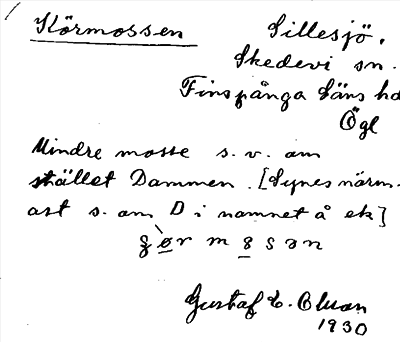 Körmossen
Sillesjö.
Skedevi sn.
Finspånga läns hd
Ögl
Mindre mosse s. v. om
stället Dammen. [Synes närm-
ast s. om D i namnet å ek]
Gustaf E. Olson
1930